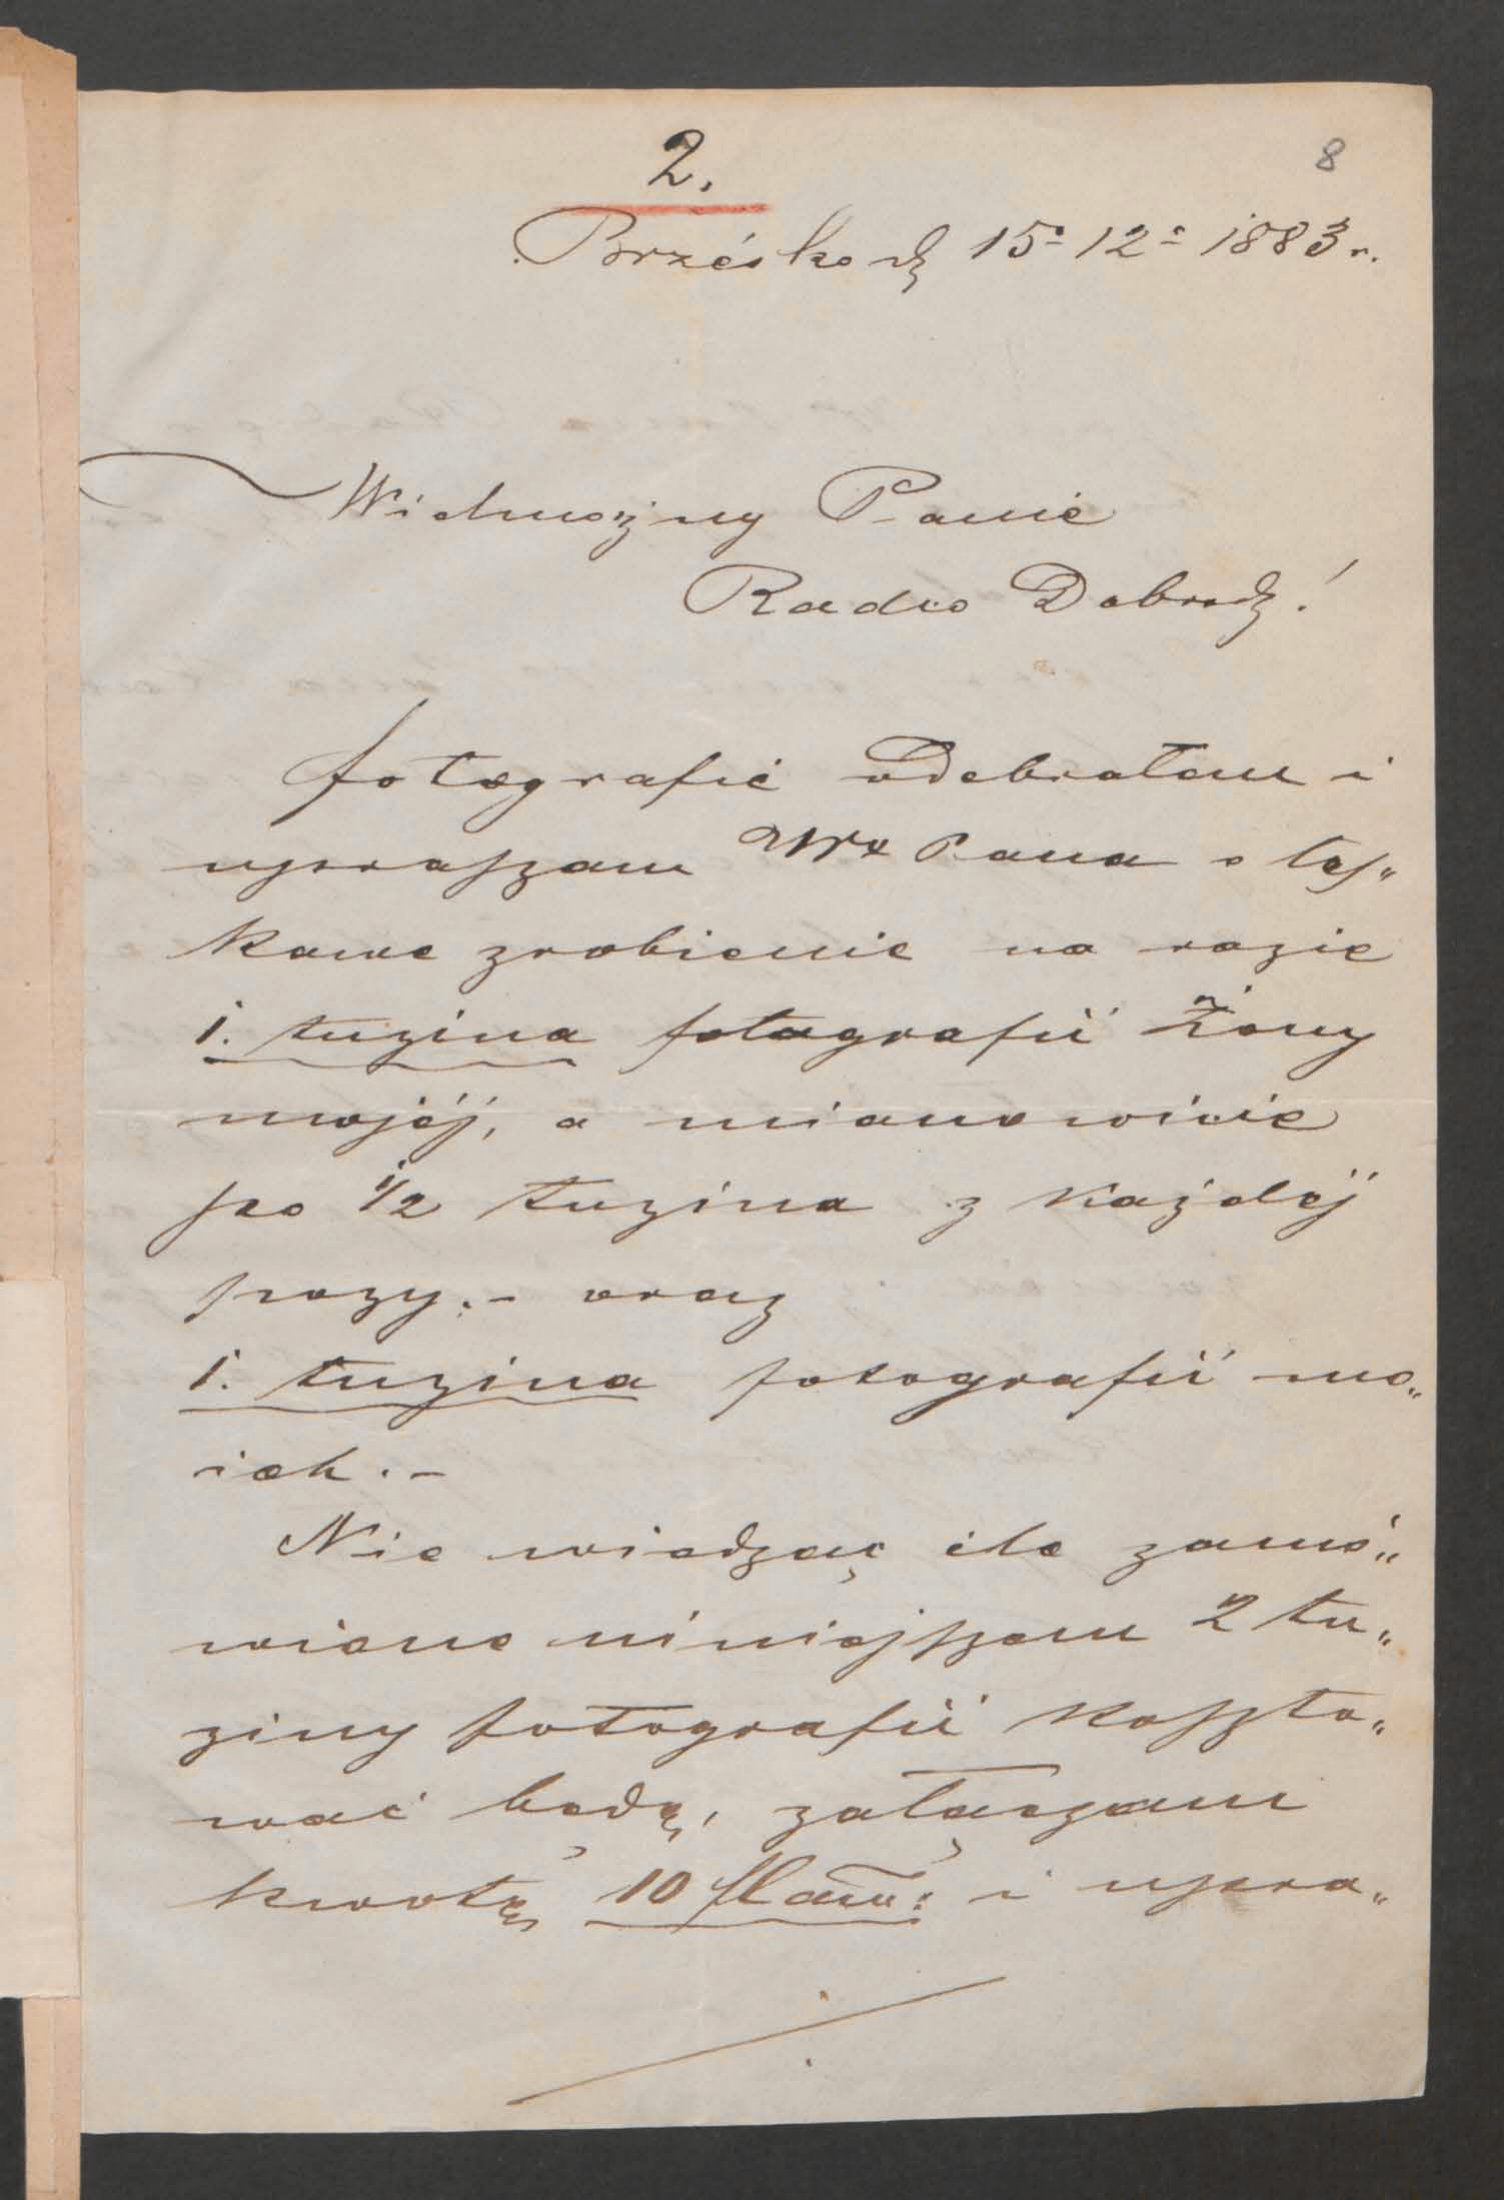 2.
8
Brzésko dz 15 12 1883 r.
Wielmożny Panie
Radco Dobrodz!
fotografie odebrałem i
upraszam Wx Pana o łas„
kawe zrobienie na razie
1. tuzina fotografii żony
mojéj, a mianowicie
po 1/2 tuzina z każdéj
pozy.- oraz
1. tuzina fotografii mo„
ich.-
Nie wiedząc ile zamó„
wione niniejszem 2 tu„
ziny fotografii koszto„
wać będą, załączam
kwotę 10 fl aw: i upra„